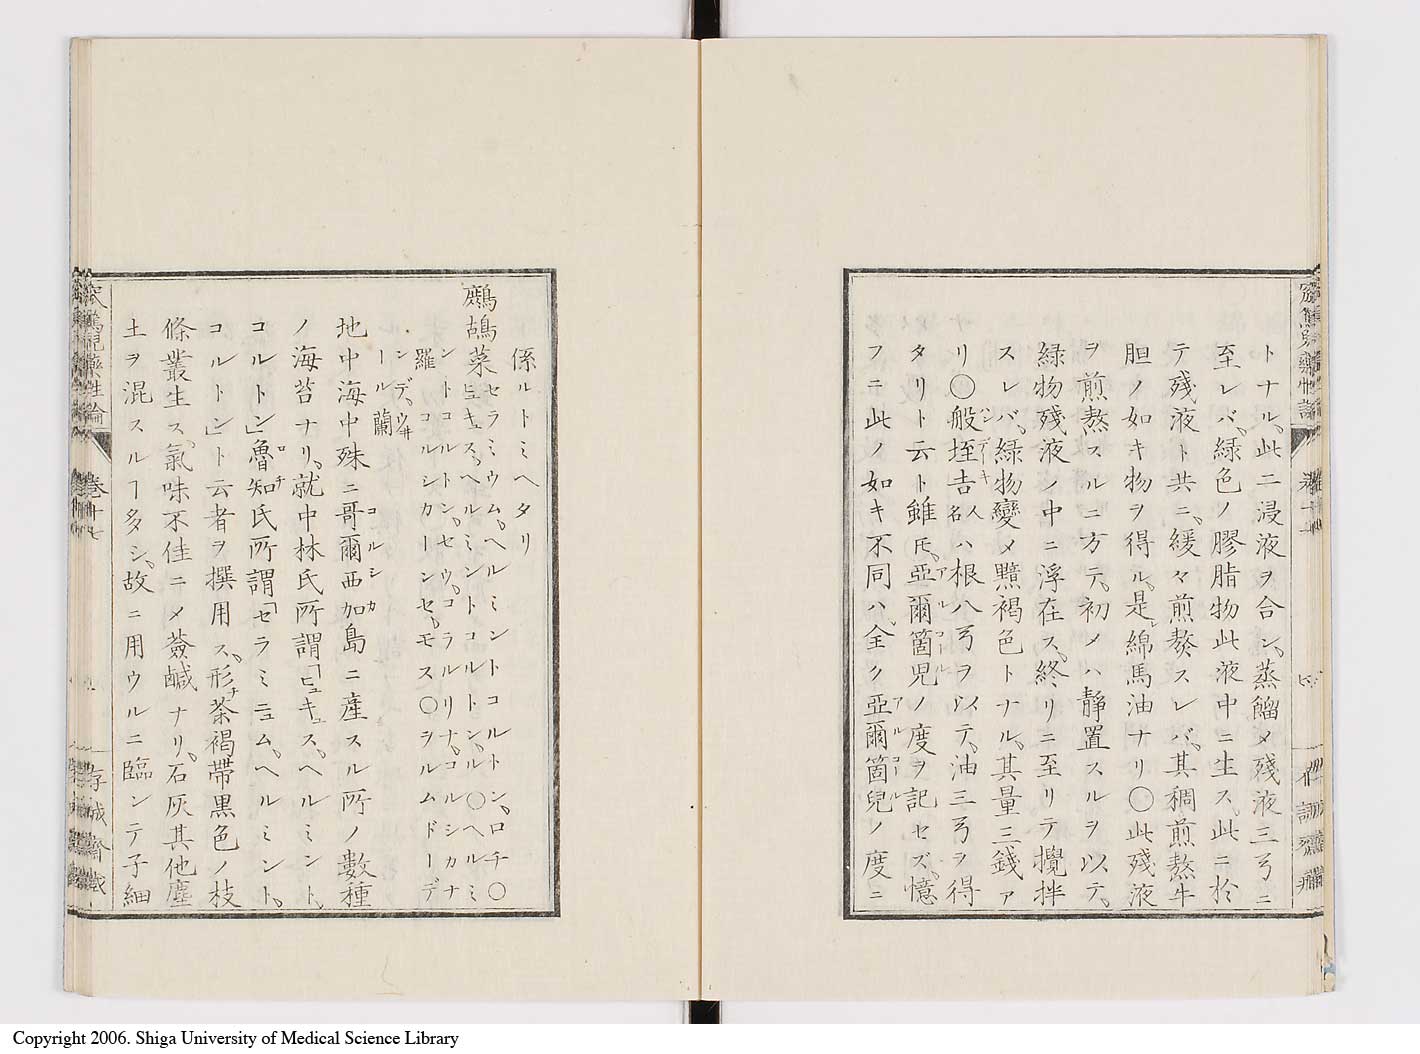 トナル、此二浸液ヲ合シ、蒸餾メ殘液三弓ニ
至レバ、緑色ノ膠脂物此液中ニ生ス、此ニ於
テ殘液ト共ニ、緩々煎熬スレバ、其稠煎熬牛
胆ノ如キ物ヲ得ル、是レ綿馬油ナリ〇此殘液
ヲ煎熬スルニ方テ、初メハ靜置スルヲ以テ、
緑物殘液ノ中ニ浮在ス、終リニ至リテ攪拌
スレバ、緑物變メ黯褐色トナル、其量三錢ア
リ〇般垤吉人名ハ根八弓ヲ以テ、油三弓ヲ得
タリト云ト雖𪜈、亞爾箇兒ノ度ヲ記セズ、憶
フニ此ノ如キ不同ハ、全ク亞爾箇兒ノ度ニ
係ルトミヘタリ
鷓鴣菜 セラミウム、ヘルミントコルトン、ロチ〇
ヒュキュス、ヘルミントコルトン、ル〇ヘルミ
ントコルトン、セウ、コラルリナ、コルシカナ
羅 コルシカーンセ、モス〇ヲルムドーデ
ンデ、ウ井
ール 蘭
地中海中殊ニ哥爾西加島ニ産スル所ノ數種
ノ海苔ナリ、就中林氏所謂「ヒュキュス、ヘルミント、
コルトン」魯知氏所謂「セラミニュム、ヘルミント、
コルトン」ト云者ヲ撰用ス、形チ茶褐帶黒色ノ枝
條叢生ス、氣味不佳ニメ薟鹹ナリ、石灰其他塵
土ヲ混スルヿ多シ、故ニ用ウルニ臨ンテ子細
窊篤兒藥性論
卷十七
存誠齋藏
Copyright 2006. Shiga University of Medical Science Library